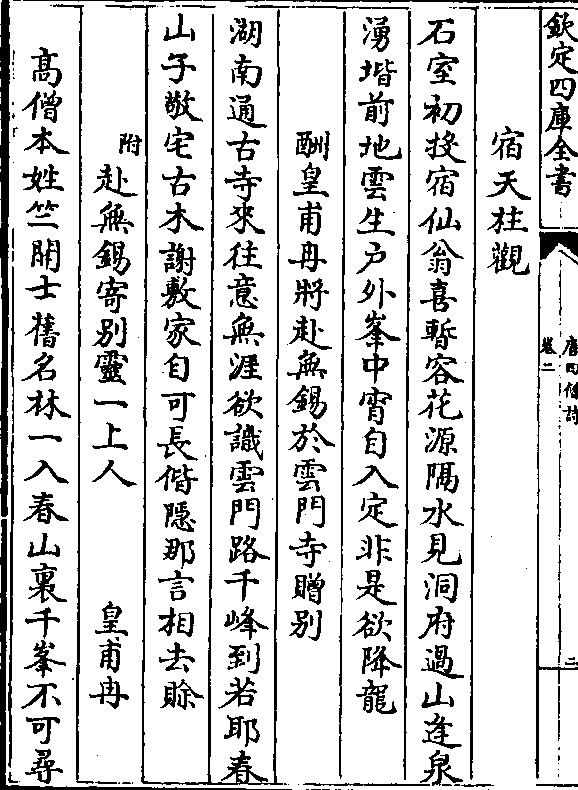 欽定四庫全書
唐四僧詩
卷二
二
宿天柱觀
石室初投宿仙翁喜暫容花源隔水見洞府過山逢泉
湧堦前地雲生户外峯中宵自入定非是欲降龍
酬皇甫冉將赴無錫於雲門寺贈别
湖南通古寺來往意無涯欲識雲門路千峰到若耶春
山子敬宅古木謝敷家自可長偕隠那言相去賖
附赴無錫寄别靈一上人 皇甫冉
髙僧本姓竺開士舊名林一入春山裏千峯不可尋